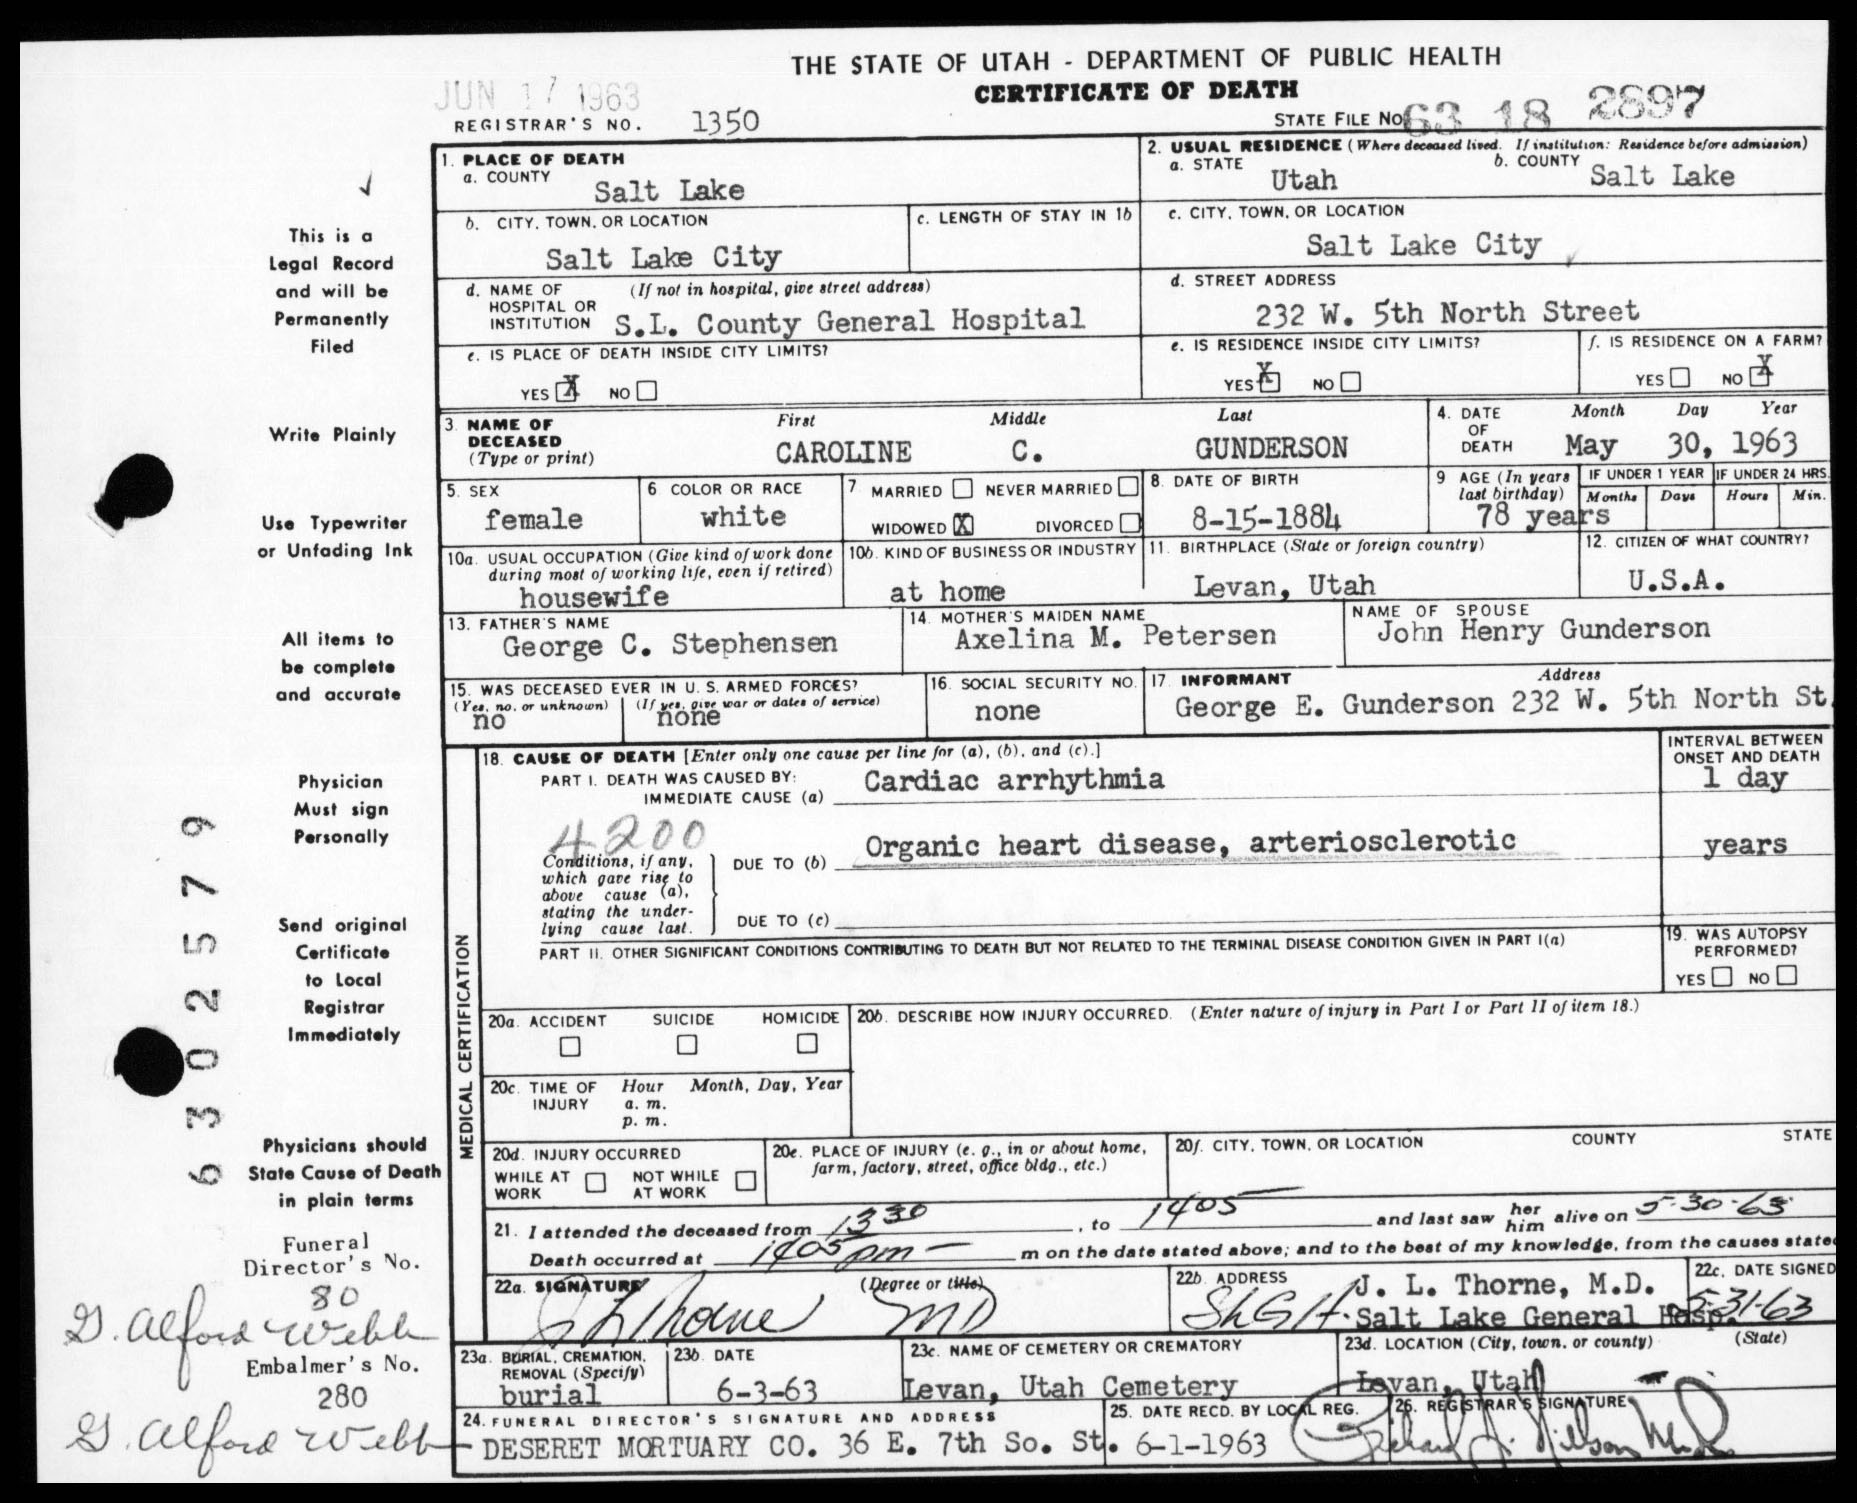 THE STATE OF UTAH - DEPARTMENT OF PUBLIC HEALTH
CERTIFICATE OF DEATH
JUN 17 1963
REGISTRAR'S NO. 1350
STATE FILE NO. 63 18 2897
1. PLACE OF DEATH
a. COUNTY
Salt Lake
2. USUAL RESIDENCE (Where deceased lived. If institution: Residence before admission)
a. STATE Utah b. COUNTY Salt Lake
b. CITY, TOWN, OR LOCATION
Salt Lake City
c. LENGTH OF STAY IN 1b
c. CITY, TOWN, OR LOCATION
Salt Lake City
d. NAME OF HOSPITAL OR INSTITUTION (If not in hospital, give street address)
S.L. County General Hospital
d. STREET ADDRESS
232 W. 5th North Street
e. IS PLACE OF DEATH INSIDE CITY LIMITS?
YES X NO
e. IS RESIDENCE INSIDE CITY LIMITS?
YES X NO
f. IS RESIDENCE ON A FARM?
YES NO X
3. NAME OF DECEASED (Type or print)
First Middle Last
CAROLINE C. GUNDERSON
4. DATE OF DEATH
Month Day Year
May 30, 1963
5. SEX
female
6 COLOR OR RACE
white
7 MARRIED NEVER MARRIED
WIDOWED X DIVORCED
8. DATE OF BIRTH
8-15-1884
9 AGE (In years last birthday)
78 years
IF UNDER 1 YEAR
Months Days
IF UNDER 24 HRS.
Hours Min.
10a. USUAL OCCUPATION (Give kind of work done during most of working life, even if retired)
housewife
10b. KIND OF BUSINESS OR INDUSTRY
at home
11. BIRTHPLACE (State or foreign country)
Levan, Utah
12. CITIZEN OF WHAT COUNTRY?
U.S.A.
13. FATHER'S NAME
George C. Stephensen
14. MOTHER'S MAIDEN NAME
Axelina M. Petersen
NAME OF SPOUSE
John Henry Gunderson
15. WAS DECEASED EVER IN U. S. ARMED FORCES?
(Yes, no, or unknown) (If yes, give war or dates of service)
no none
16. SOCIAL SECURITY NO.
none
17. INFORMANT Address
George E. Gunderson 232 W. 5th North St.
MEDICAL CERTIFICATION
18. CAUSE OF DEATH [Enter only one cause per line for (a), (b), and (c).]
INTERVAL BETWEEN ONSET AND DEATH
PART I. DEATH WAS CAUSED BY:
IMMEDIATE CAUSE (a) Cardiac arrhythmia 1 day
4200
Conditions, if any, which gave rise to above cause (a), stating the underlying cause last.
DUE TO (b) Organic heart disease, arteriosclerotic years
DUE TO (c)
PART II. OTHER SIGNIFICANT CONDITIONS CONTRIBUTING TO DEATH BUT NOT RELATED TO THE TERMINAL DISEASE CONDITION GIVEN IN PART I(a)
19. WAS AUTOPSY PERFORMED?
YES NO
20a. ACCIDENT SUICIDE HOMICIDE
20b. DESCRIBE HOW INJURY OCCURRED. (Enter nature of injury in Part I or Part II of item 18.)
20c. TIME OF INJURY Hour Month, Day, Year
a. m.
p. m.
20d. INJURY OCCURRED
WHILE AT WORK NOT WHILE AT WORK
20e. PLACE OF INJURY (e. g., in or about home, farm, factory, street, office bldg., etc.)
20f. CITY, TOWN, OR LOCATION COUNTY STATE
21. I attended the deceased from 1330, to 1405 and last saw her him alive on 5-30-63
Death occurred at 1405 pm m on the date stated above; and to the best of my knowledge, from the causes state
22a. SIGNATURE (Degree or title)
J L Thorne MD
22b. ADDRESS
SLGH. J. L. Thorne, M.D.
Salt Lake General Hosp.
22c. DATE SIGNED
5-31-63
23a. BURIAL, CREMATION, REMOVAL (Specify)
burial
23b. DATE
6-3-63
23c. NAME OF CEMETERY OR CREMATORY
Levan, Utah Cemetery
23d. LOCATION (City, town, or county) (State)
Levan, Utah
24. FUNERAL DIRECTOR'S SIGNATURE AND ADDRESS
DESERET MORTUARY CO. 36 E. 7th So. St.
25. DATE RECD. BY LOCAL REG.
6-1-1963
26. REGISTRAR'S SIGNATURE
This is a
Legal Record
and will be
Permanently
Filed
Write Plainly
Use Typewriter
or Unfading Ink
All items to
be complete
and accurate
Physician
Must sign
Personally
Send original
Certificate
to Local
Registrar
Immediately
Physicians should
State Cause of Death
in plain terms
6302579
Funeral
Director's No.
80
G. Alford Webb
Embalmer's No.
280
G. Alford Webb